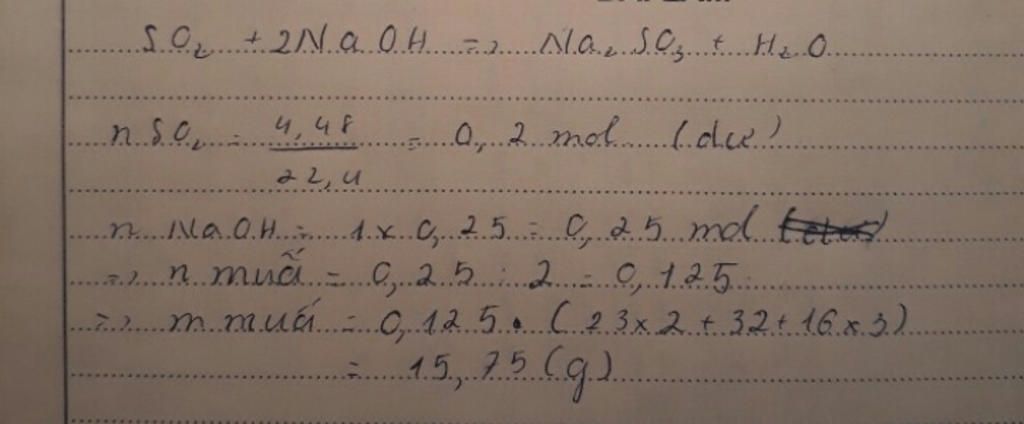 SO₂ + 2NaOH => Na₂SO₃ + H₂O
n SO₂ = 4,48 / 22,4 = 0,2 mol (dư)
n NaOH = 1 x 0,25 = 0,25 mol
=> n muối = 0,25 : 2 = 0,125
=> m muối = 0,125 . (23x2 + 32 + 16x3)
= 15,75 (g)